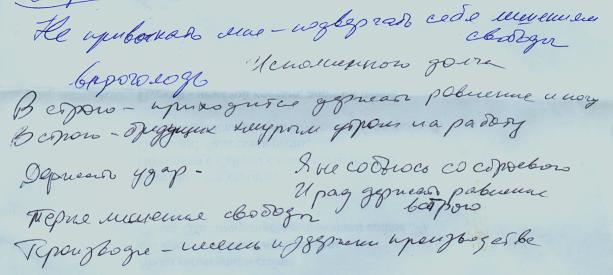 Не привыкать мне – подвергать себя лишениям
свободы
Исполненного долга
в гололодь
В строю – приходится держать равнение и ногу
В строю – бредущих хмурым утром на работу
Держать удар –
Я не собьюсь со строевого
И рад держать равнение
в строю
Терпя лишение свободы
Производя – лишь издержки производства